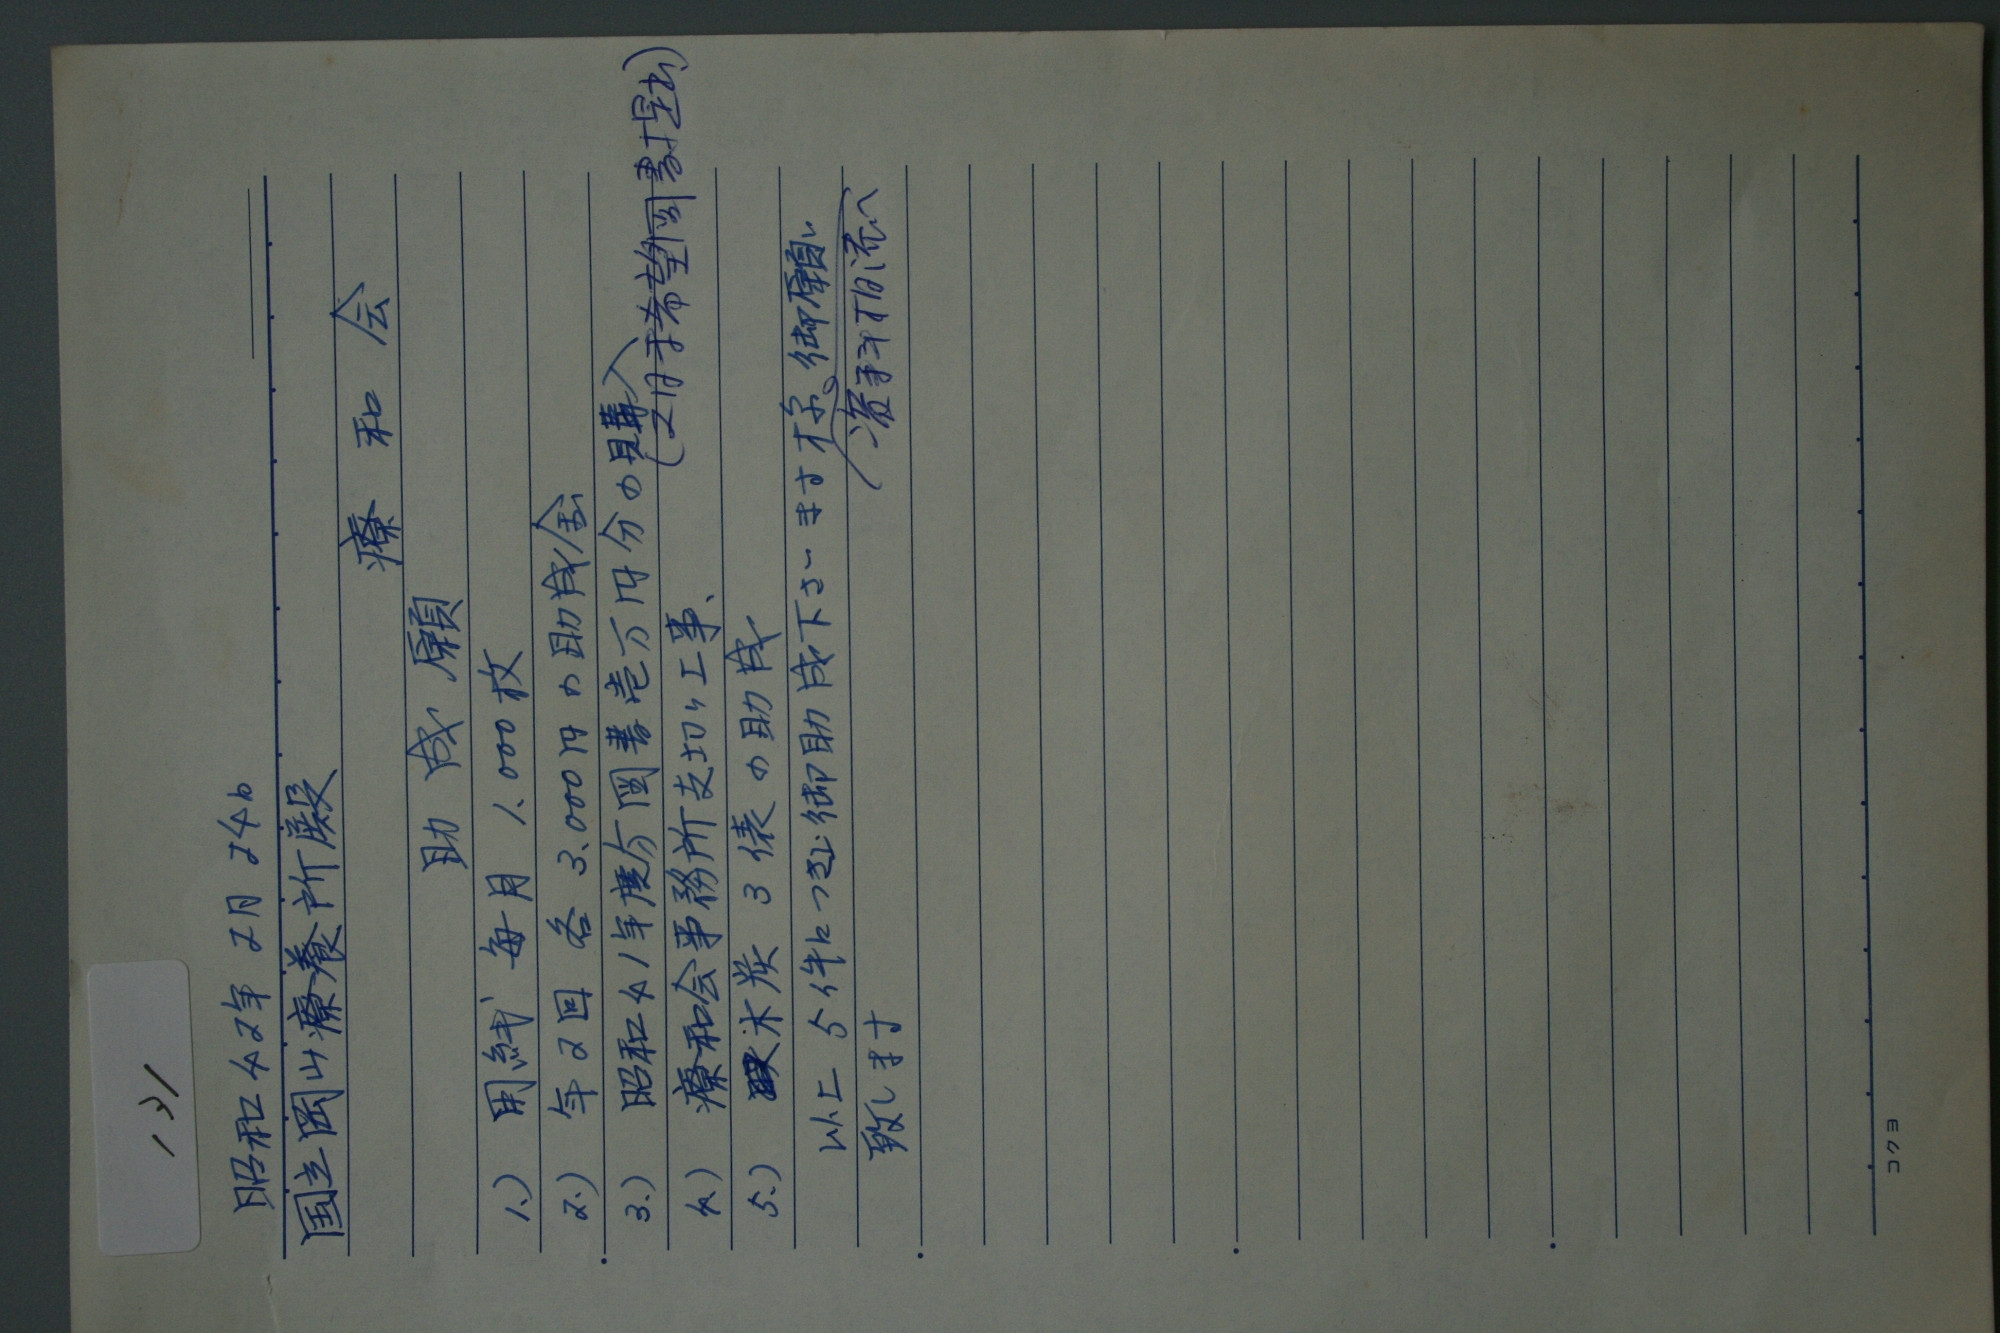 131
昭和42年2月24日
国立岡山療養所長殿
療和会
助成願
1.) 用紙 毎月 1.000枚
2.) 年2回 各 3.000円の助成金
3.) 昭和41年度分図書壱万円分の購入
(2月末希望図書提出)
4.) 療和会事務所支切り工事、
5.) 木炭 3俵の助成
以上 5件につき御助成下さいます様、御願い
致します
コクヨ